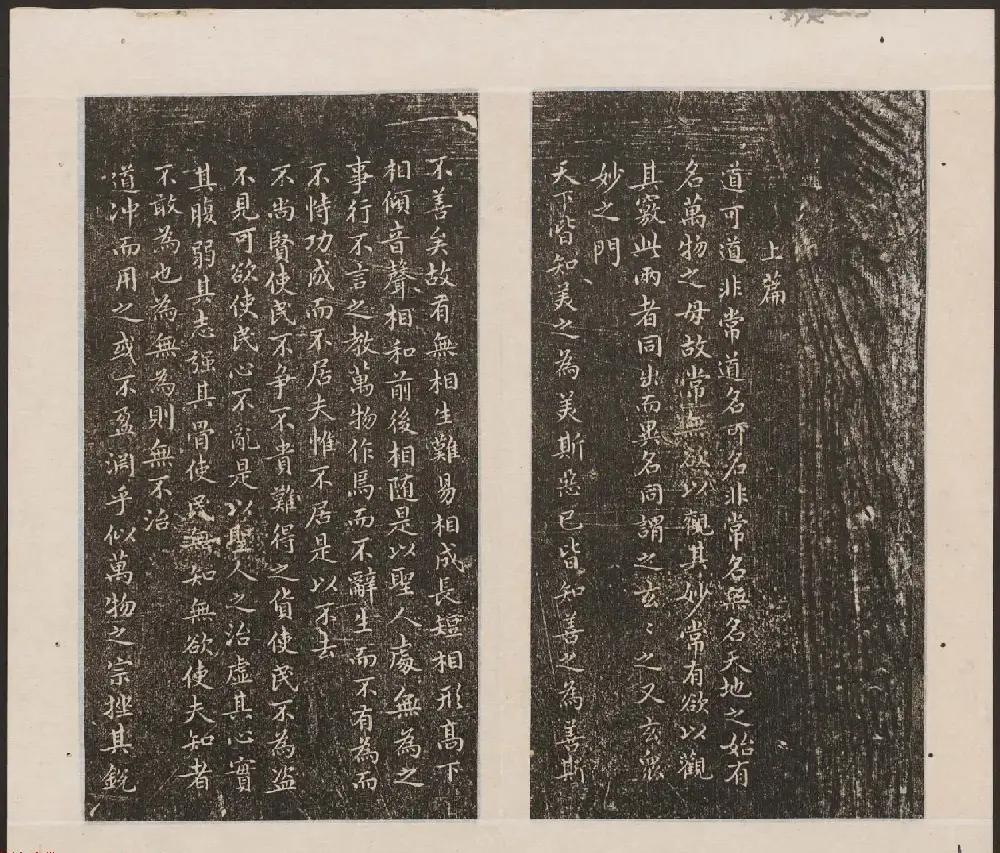 上篇
道可道非常道名可名非常名無名天地之始有
名萬物之母故常無欲以觀其妙常有欲以觀
其竅此兩者同出而異名同謂之玄〻之又玄衆
妙之門
天下皆知美之為美斯惡已皆知善之為善斯
不善矣故有無相生難易相成長短相形高下
相傾音聲相和前後相随是以聖人處無為之
事行不言之教萬物作焉而不辭生而不有為而
不恃功成而不居夫惟不居是以不去
不尚賢使民不爭不貴難得之貨使民不為盜
不見可欲使民心不亂是以聖人之治虛其心實
其腹弱其志强其骨使民無知無欲使夫知者
不敢為也為無為則無不治
道冲而用之或不盈淵乎似萬物之宗挫其銳